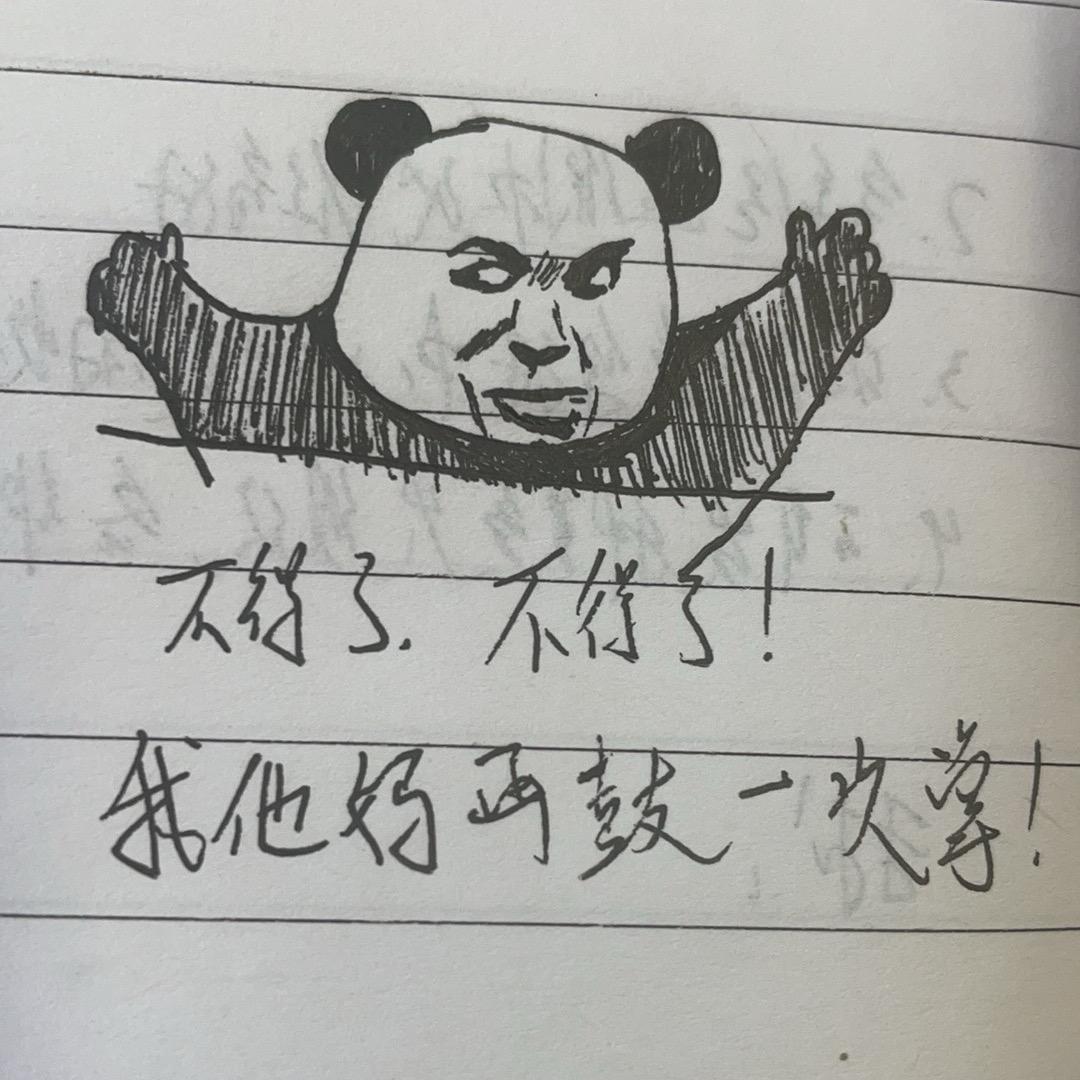 不得了.不得了!
我他妈再鼓一次掌!